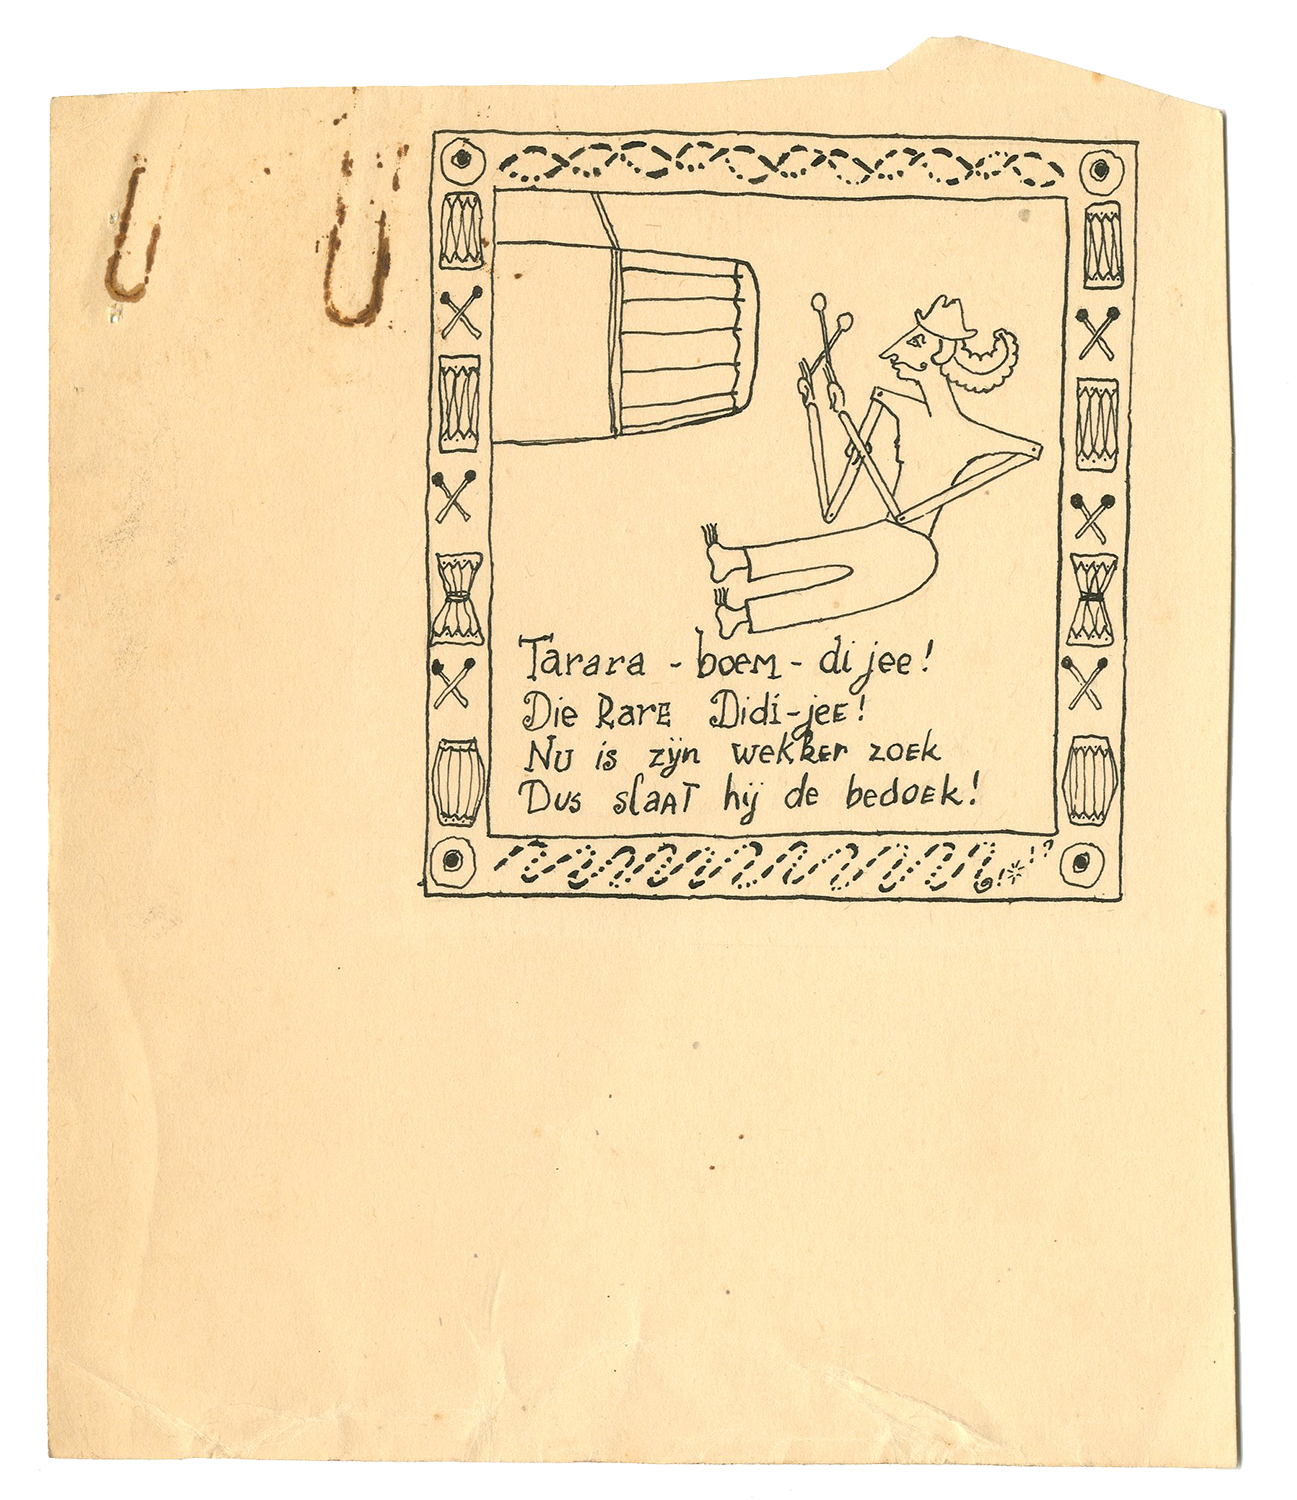 Tarara - boem - dijee!
Die Rare Didi-jee!
Nu is zijn wekker zoek
Dus slaat hij de bedoek!